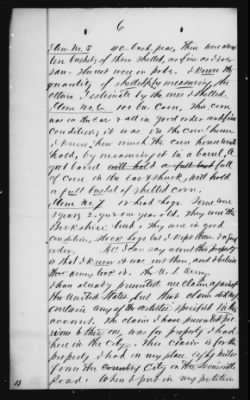 6
Item No. 5 40 bush peas, There were about
ten bushels of them shelled, as fine as I ever
saw. The rest were in pods. I know the
quantity of shelled by measuring the
others I estimate by the ones I shelled.
Item No. 6 100 bu. Corn. This corn
was in the ear & all in good order and fine
condition, it was in the corn house
I knew how much the corn house
holds, by measuring it in a barrel, &
full
of corn in the ear & shuck, will hold
a full bushel of shelled corn.
Item No. 7 12 head hogs. Some were
2 years 2. yrs one year old. They were the
Berkshire breed, they were in good
condition, Stock hogs but I kept them in fine
order. All I can say about this property
is that I knew it was out there, and I believe
the army took it. The U.S. Army.
I have already presented one claim against
the United States but that claim did not
contain any of the articles specified in this
account. The claim I have presented pre-
vious to this one, was for property I had
here in the city. This claim is for the
property I had on my place eight miles
from the City on the Louisville
Road. When I put in my petition
13